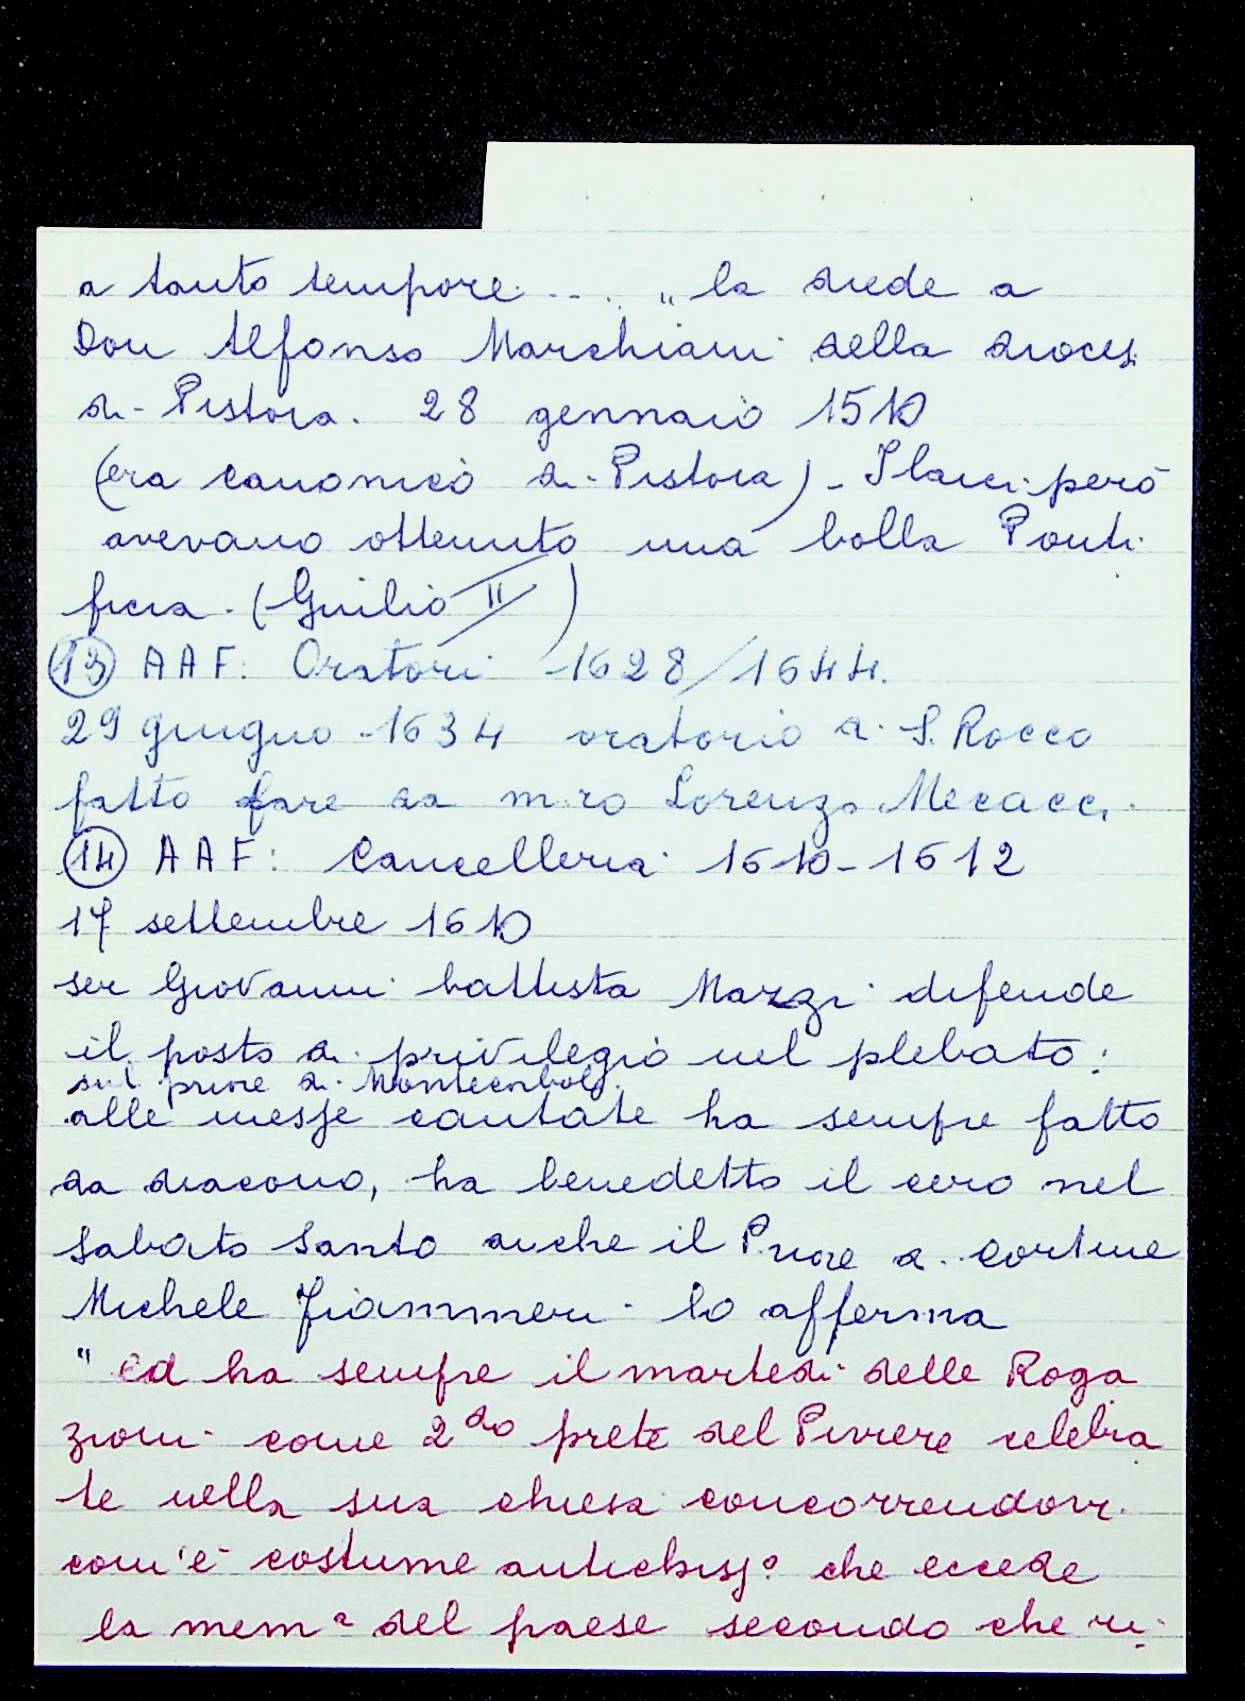 a tanto tempore .... „ la diede a
Don Alfonso Marchiani della diocesi
di Pistoia. 28 gennaio 1510
(era canonico di Pistoia) - però
avevano ottenuto una bolla Ponti
ficia. (Giulio II)
13 AAF: Oratori 1628/1644.
29 giugno 1634 oratorio di S. Rocco
fatto fare da m.ro Lorenzo Mecacci
14 AAF: Cancelleria 1610-1612
17 settembre 1610
ser Giovanni battista Marzi difende
il posto di privilegio nel plebato:
sul priore di Montecorboli
alle messe cantate ha sempre fatto
da diacono, ha benedetto il cero nel
Sabato Santo anche il Priore di Cortine
Michele Fiammeri lo afferma
" Ed ha sempre il martedì delle Roga
zioni come 2do prete del Piviere celebra
te nella sua chiesa concorrendovi
com'è costume antichiss° che eccede
la mem.a del paese secondo che ri